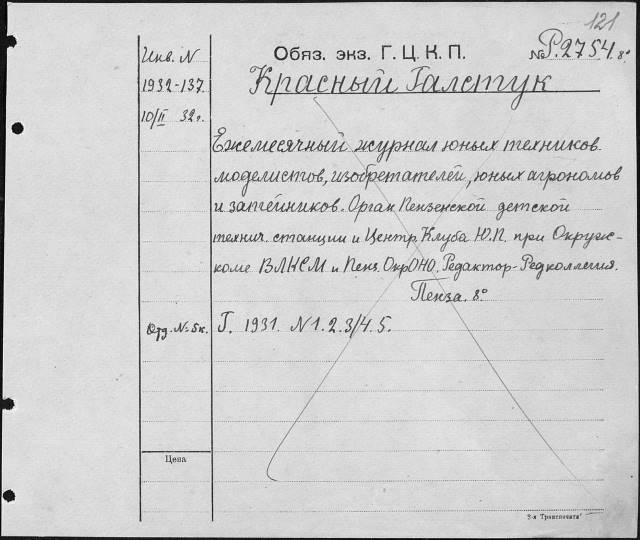 121
Инв. N
1932-137.
10/II 32г.
Обяз. экз. Г. Ц. К. П.
№ Р.2754. 8°
Красный Галстук
Ежемесячный журнал юных техников
моделистов, изобретателей, юных агрономов
и затейников. Орган Пензенской детской
технич. станции и Центр. Клуба Ю.П. при Окруж-
коме ВЛКСМ и Пенз. ОкрОНО. Редактор-Редколлегия.
Пенза. 8°
Отд. N. 5к.
Г. 1931. N 1. 2. 3/4. 5.
Цена
3-я „Транспечати"